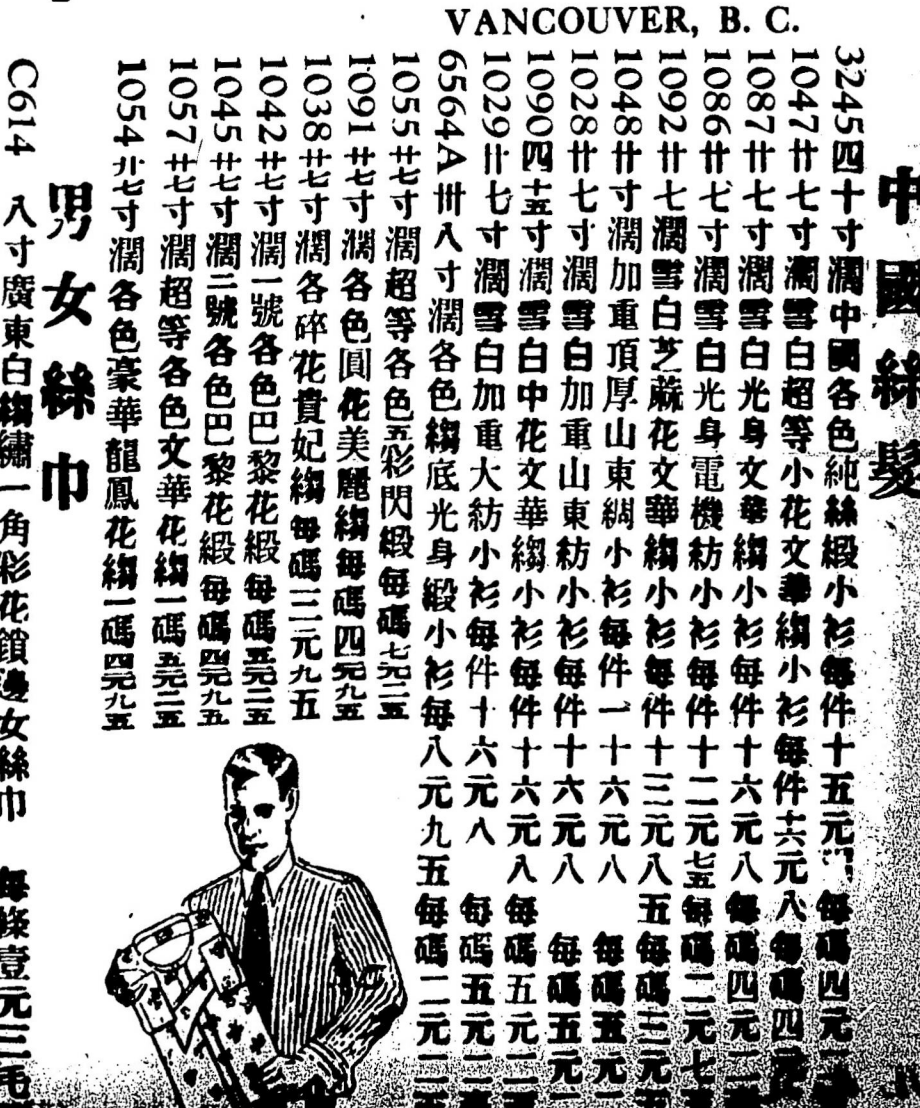 VANCOUVER, B. C.
中國絲髮
3245 四十寸濶中國各色純絲緞小衫每件十五元 每碼四元
1047 廿七寸濶雪白超等小花文華縐小衫每件十六元八 每碼四元
1087 廿七寸濶雪白光身文華縐小衫每件十六元八 每碼四元二
1086 廿七寸濶雪白光身電機紡小衫每件十二元七五 每碼二元七五
1092 廿七濶雪白芝蔴花文華縐小衫每件十三元八五 每碼三元五
1048 廿寸濶加重頂厚山東綢小衫每件一十六元八 每碼五元
1028 廿七寸濶雪白加重山東紡小衫每件十六元八 每碼五元一
1090 四十五寸濶雪白中花文華縐小衫每件十六元八 每碼五元二
1029 廿七寸濶雪白加重大紡小衫每件十六元八 每碼五元二
6564A 卅八寸濶各色縐底光身緞小衫每八元九五 每碼二元二五
1055 廿七寸濶超等各色五彩閃緞每碼七元二五
1091 廿七寸濶各色圓花美麗縐每碼四元九五
1038 廿七寸濶各碎花貴妃縐每碼三元九五
1042 廿七寸濶一號各色巴黎花緞每碼五元二五
1045 廿七寸濶二號各色巴黎花緞每碼四元九五
1057 廿七寸濶超等各色文華花縐一碼五元二五
1054 廿七寸濶各色豪華龍鳳花縐一碼四元九五
男女絲巾
C614 八寸廣東白縐繡一角彩花鎖邊女絲巾 每條壹元三毛